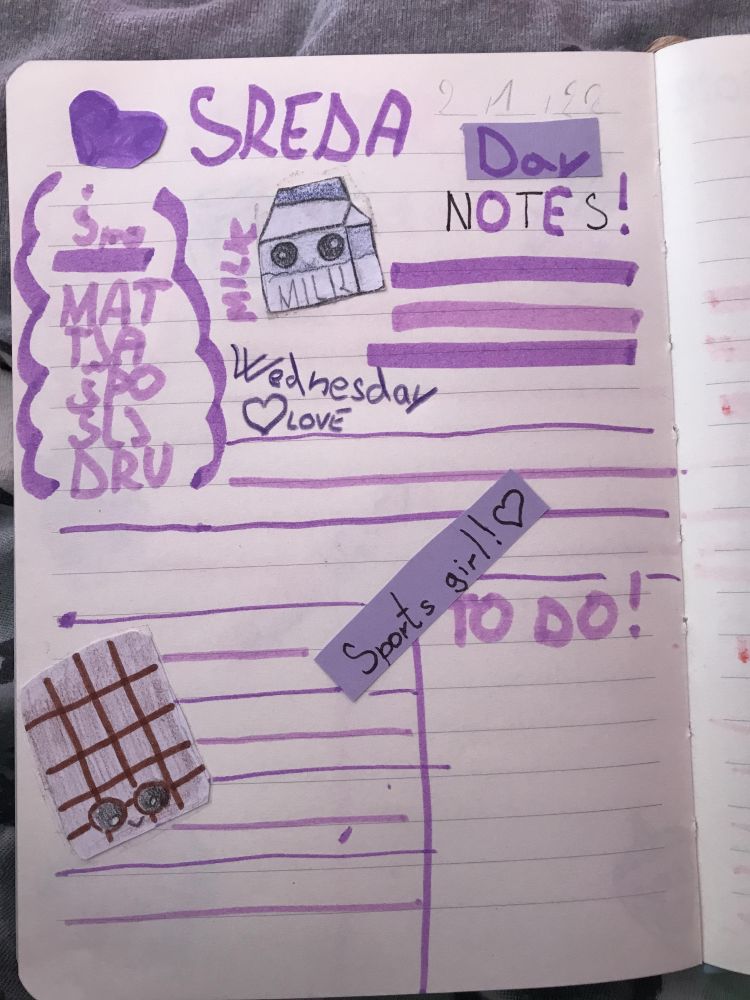 SREDA
Day
NOTES!
MAT
TJA
ŠPO
SLJ
DRU
MILK
MILK
Wednesday
♡LOVE
Sports girl!!♡
TO DO!